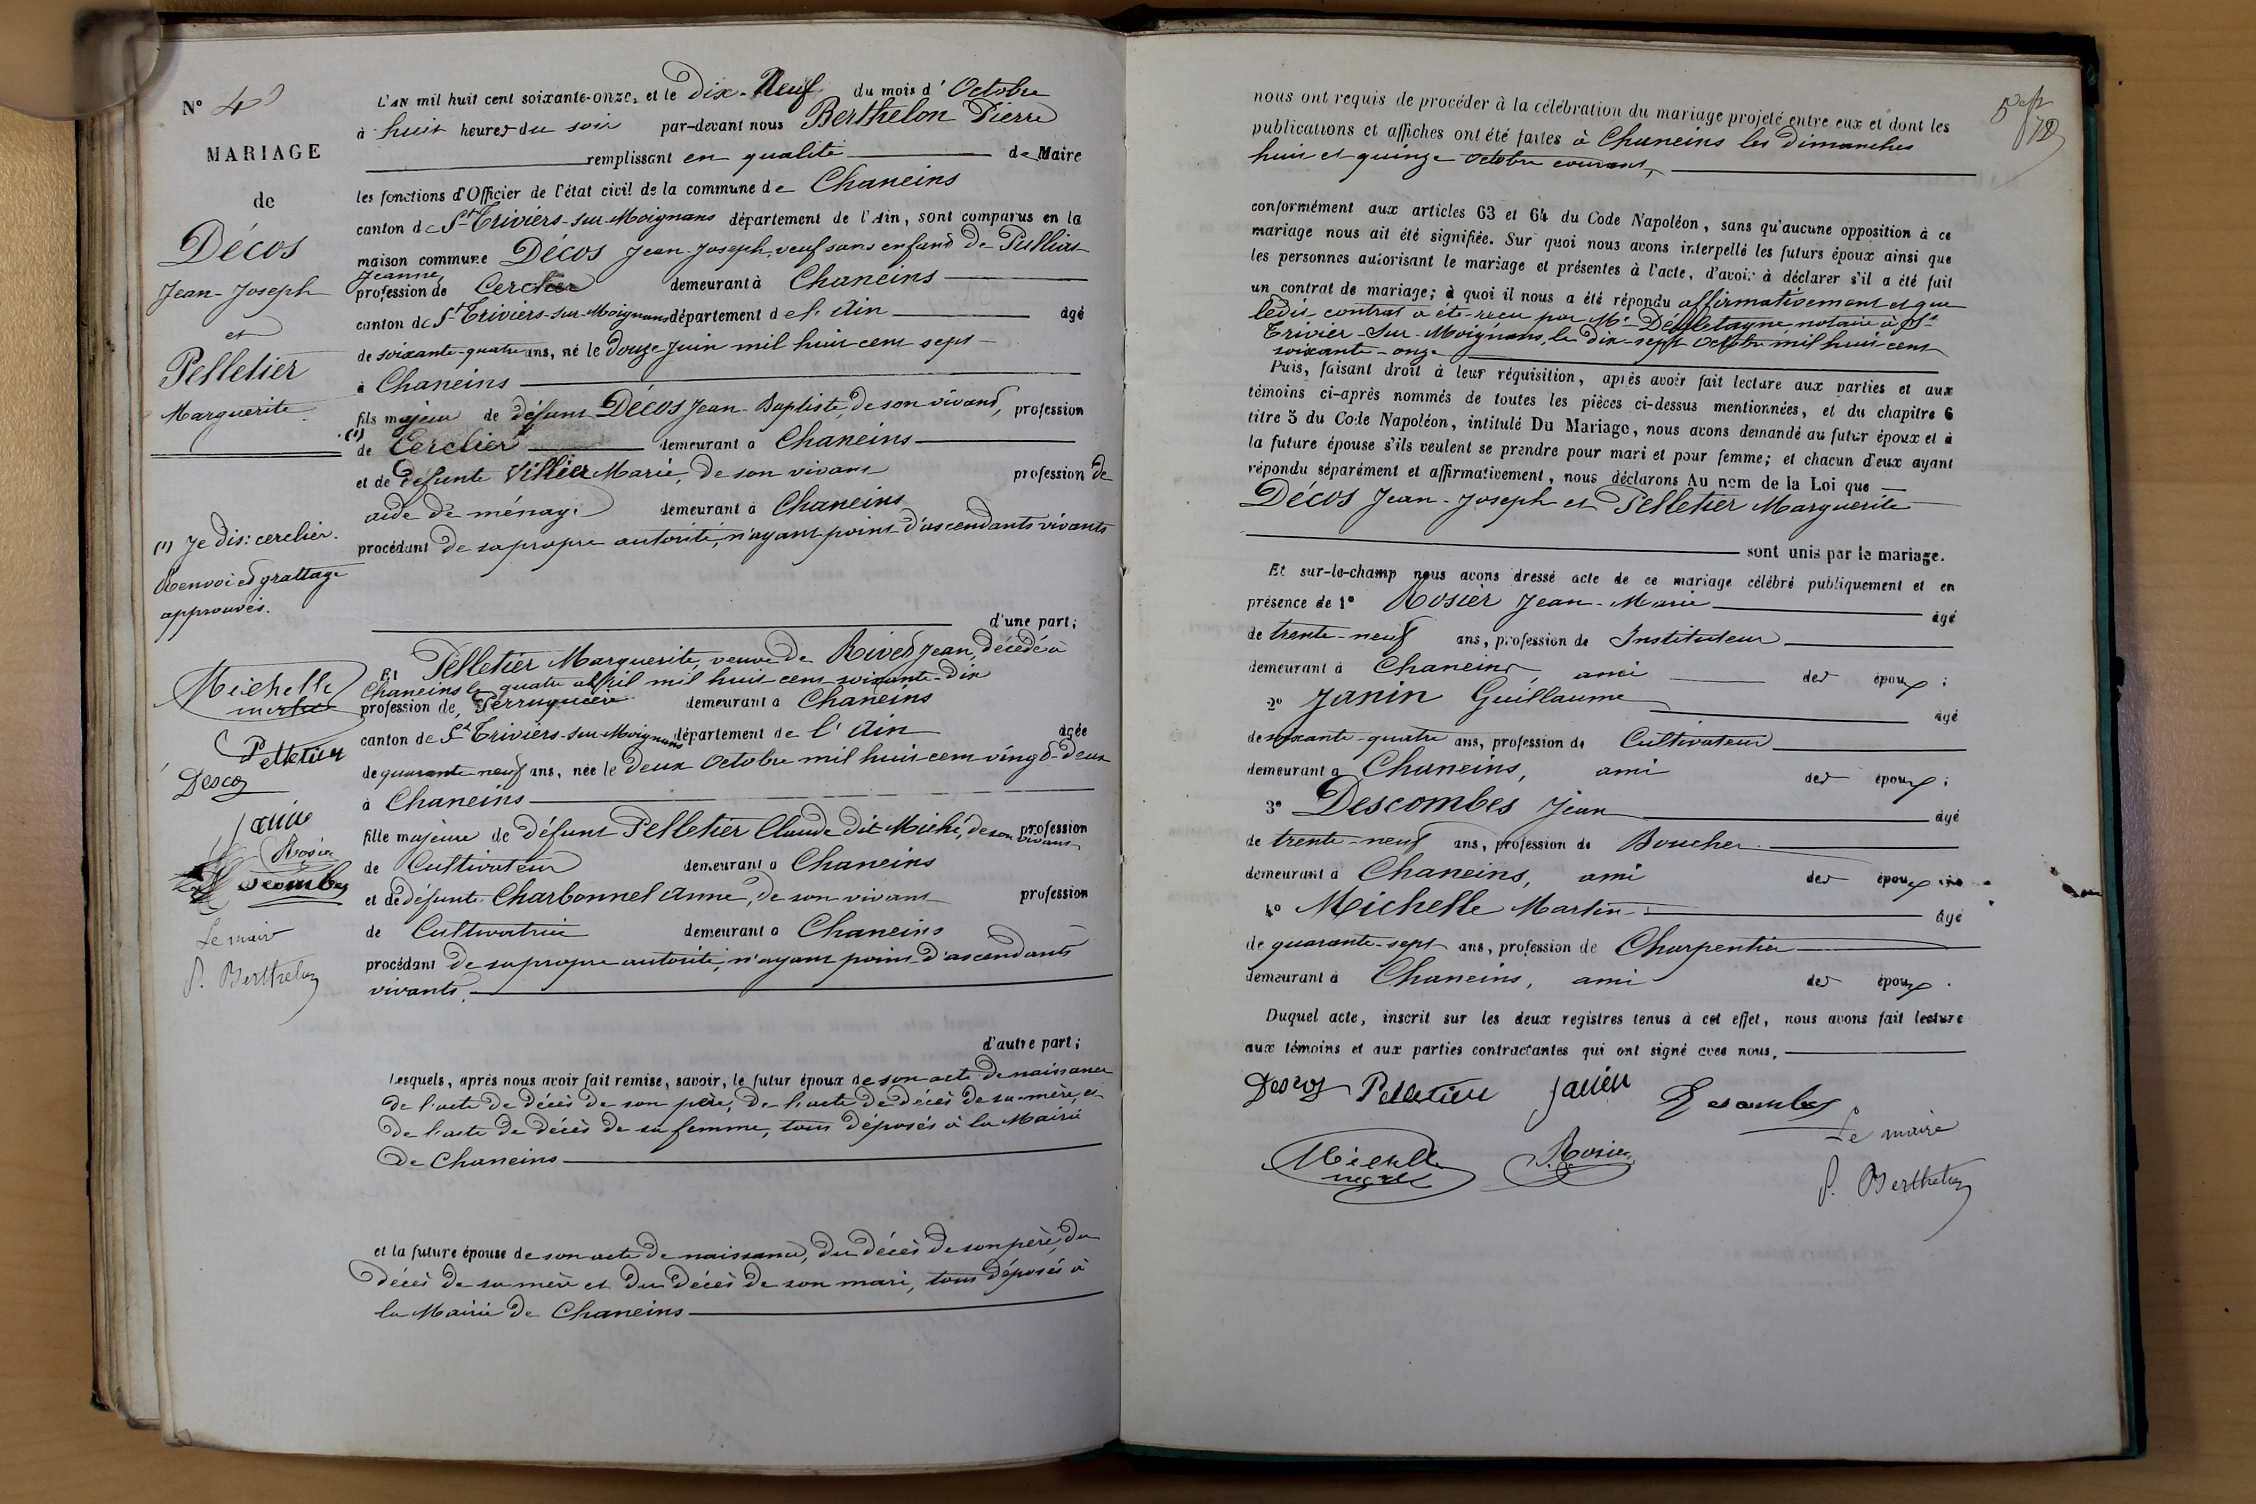 N° 4
MARIAGE
de
Décos
Jean-Joseph
et
Pelletier
Marguerite
(1) Je dis: cerclier.
Renvoi et grattage
approuvés.
Michelle
Pelletier
Descoz
Janin
Rosier
Descombes
Le maire
P. Berthelon
L'AN mil huit cent soixante-onze, et le Dix-Neuf du mois d'Octobre
à huit heures du soir par-devant nous Berthelon Pierre
remplissant en qualité de Maire
les fonctions d'Officier de l'état civil de la commune de Chaneins
canton de St Triviers-sur-Moignans département de l'Ain, sont comparus en la
maison commune Décos Jean-Joseph, veuf sans enfant de
Jeanne
profession de Cerclier demeurant à Chaneins
canton de St Triviers-sur-Moignans département de l'Ain âgé
de soixante-quatre ans, né le Douze Juin mil huit cent sept
à Chaneins
fils majeur de défunt Décos Jean-Baptiste, de son vivant, profession
(1)
de Cerclier demeurant à Chaneins
et de défunte Villier Marie, de son vivant profession de
aide de ménage demeurant à Chaneins
procédant de sa propre autorité, n'ayant point d'ascendants vivants
d'une part;
Et Pelletier Marguerite, veuve de Rivet Jean, décédé à
Chaneins le quatre avril mil huit cent soixante-dix
profession de Perruquière demeurant à Chaneins
canton de St Triviers-sur-Moignans département de l'Ain âgée
de quarante-neuf ans, née le Deux Octobre mil huit cent vingt-deux
à Chaneins
fille majeure de défunt Pelletier Claude dit Miché, de son vivant profession
de Cultivateur demeurant à Chaneins
et de défunte Charbonnel Anne, de son vivant profession
de Cultivatrice demeurant à Chaneins
procédant de sa propre autorité, n'ayant point d'ascendants
vivants.
d'autre part;
Lesquels, après nous avoir fait remise, savoir, le futur époux de son acte de naissance
de l'acte de décès de son père, de l'acte de décès de sa mère, et
de l'acte de décès de sa femme, tous déposés à la Mairie
de Chaneins
et la future épouse de son acte de naissance, du décès de son père, du
décès de sa mère et du décès de son mari, tous déposés à
la Mairie de Chaneins
nous ont requis de procéder à la célébration du mariage projeté entre eux et dont les
publications et affiches ont été faites à Chaneins les Dimanches
huit et quinze Octobre courant,
conformément aux articles 63 et 64 du Code Napoléon, sans qu'aucune opposition à ce
mariage nous ait été signifiée. Sur quoi nous avons interpellé les futurs époux ainsi que
les personnes autorisant le mariage et présentes à l'acte, d'avoir à déclarer s'il a été fait
un contrat de mariage; à quoi il nous a été répondu affirmativement et que
ledit contrat a été reçu par Me notaire à St
Trivier-sur-Moignans, le dix-sept Octobre mil huit cent
soixante-onze
Puis, faisant droit à leur réquisition, après avoir fait lecture aux parties et aux
témoins ci-après nommés de toutes les pièces ci-dessus mentionnées, et du chapitre 6
titre 5 du Code Napoléon, intitulé Du Mariage, nous avons demandé au futur époux et à
la future épouse s'ils veulent se prendre pour mari et pour femme; et chacun d'eux ayant
répondu séparément et affirmativement, nous déclarons Au nom de la Loi que
Décos Jean-Joseph et Pelletier Marguerite
sont unis par le mariage.
Et sur-le-champ nous avons dressé acte de ce mariage célébré publiquement et en
présence de 1° Rosier Jean-Marie âgé
de trente-neuf ans, profession de Instituteur
demeurant à Chaneins, ami des époux;
2° Janin Guillaume âgé
de soixante-quatre ans, profession de Cultivateur
demeurant à Chaneins, ami des époux;
3° Descombes Jean âgé
de trente-neuf ans, profession de Boucher
demeurant à Chaneins, ami des époux
4° Michelle Martin âgé
de quarante-sept ans, profession de Charpentier
demeurant à Chaneins, ami des époux.
Duquel acte, inscrit sur les deux registres tenus à cet effet, nous avons fait lecture
aux témoins et aux parties contractantes qui ont signé avec nous.
Descoz Pelletier Janin Descombes
Le maire
Michelle Rosier
P. Berthelon